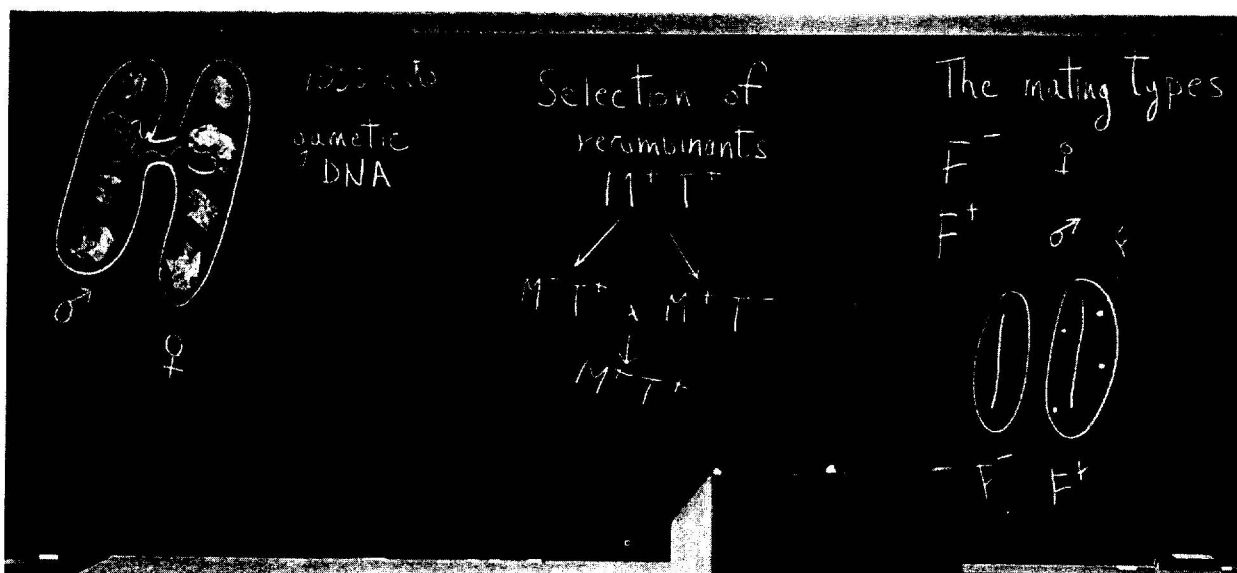 gametic
DNA
♂
♀
Selection of
recombinants
M⁺ T⁺
M⁻ T⁺ x M⁺ T⁻
M⁺ T⁺
The mating types
F⁻ ♀
F⁺ ♂
F⁻ F⁺